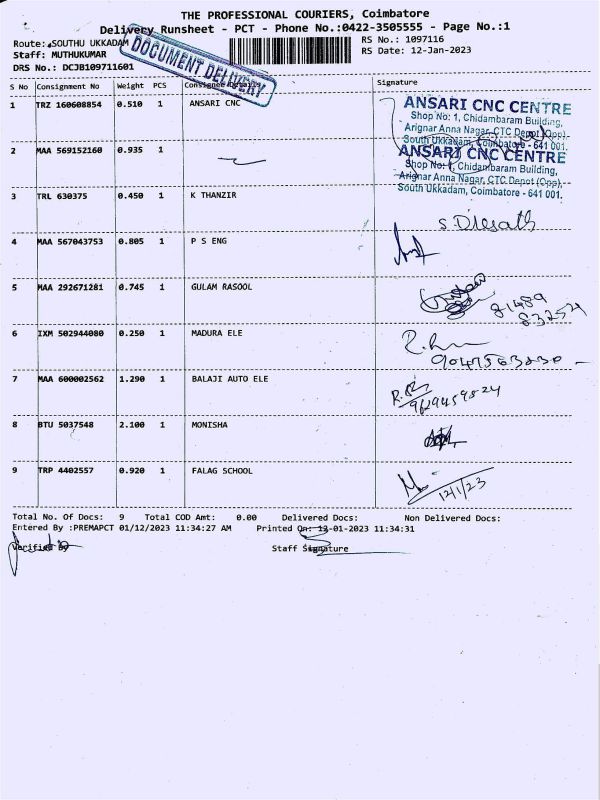 THE PROFESSIONAL COURIERS, Coimbatore
Delivery Runsheet - PCT - Phone No.:0422-3505555 - Page No.:1
Route: SOUTHU UKKADAM
RS No.: 1097116
Staff: MUTHUKUMAR
RS Date: 12-Jan-2023
DRS No.: DCJB109711601
DOCUMENT DELIVERY
S No Consignment No Weight PCS Consignee Details Signature
1 TRZ 160608854 0.510 1 ANSARI CNC
ANSARI CNC CENTRE
Shop No: 1, Chidambaram Building,
Arignar Anna Nagar, CTC Depot (Opp),
South Ukkadam, Coimbatore - 641 001.
2 MAA 569152160 0.935 1
ANSARI CNC CENTRE
Shop No: 1, Chidambaram Building,
Arignar Anna Nagar, CTC Depot (Opp),
South Ukkadam, Coimbatore - 641 001.
3 TRL 630375 0.450 1 K THANZIR
4 MAA 567043753 0.805 1 P S ENG
5 MAA 292671281 0.745 1 GULAM RASOOL
81489
83254
6 IXM 502944080 0.250 1 MADURA ELE
7 MAA 600002562 1.290 1 BALAJI AUTO ELE
9629459524
8 BTU 5037548 2.100 1 MONISHA
9 TRP 4402557 0.920 1 FALAG SCHOOL
12/1/23
Total No. Of Docs: 9 Total COD Amt: 0.00 Delivered Docs: Non Delivered Docs:
Entered By :PREMAPCT 01/12/2023 11:34:27 AM Printed On: 12-01-2023 11:34:31
Verified By Staff Signature